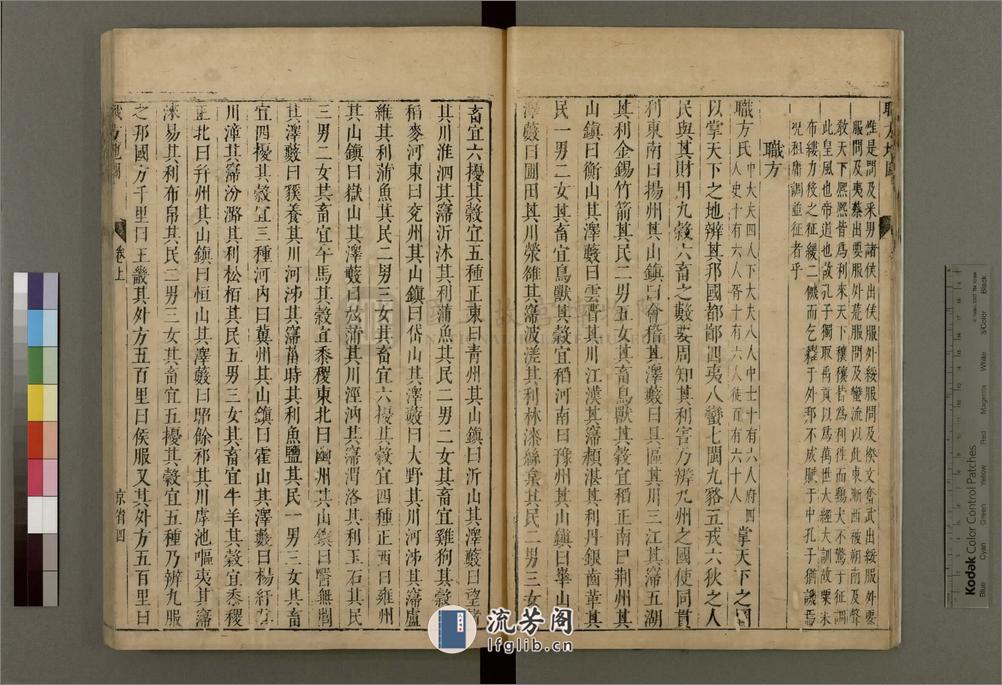 職方地圖
惟是間及采男諸侯出侯服外綏服間及揆文奮武出綏服外要
服間及夷蔡出要服外荒服間及蠻流以此東漸西被朔南及聲
教天下熙熙皆為利來天下穰穰皆為利往而鷄犬不驚于征調
此皇風也帝道也故孔子獨取禹貢以為萬世大經大訓故粟米
布縷力役之征緩二饑而乞糴于外邦不成賦于中孔子猶譏焉
况租庸調並征者乎
職方
職方氏中大夫四人下大夫八人中士十有六人府四人史十有六人胥十有六人徒百有六十人掌天下之圖
以掌天下之地辨其邦國都鄙四夷八蠻七閩九貉五戎六狄之人
民與其財用九穀六畜之數要周知其利害乃辨九州之國使同貫
利東南曰揚州其山鎮曰會稽其澤藪曰具區其川三江其寖五湖
其利金錫竹箭其民二男五女其畜鳥獸其穀宜稻正南曰荆州其
山鎮曰衡山其澤藪曰雲瞢其川江漢其寖潁湛其利丹銀齒革其
民一男二女其畜宜鳥獸其穀宜稻河南曰豫州其山鎮曰華山其
澤藪曰圃田其川滎雒其寖波溠其利林漆絲枲其民二男三女其
畜宜六擾其穀宜五種正東曰青州其山鎮曰沂山其澤藪曰望諸
其川淮泗其寖沂沭其利蒲魚其民二男二女其畜宜雞狗其穀宜
稻麥河東曰兖州其山鎮曰岱山其澤藪曰大野其川河泲其寖盧
維其利蒲魚其民二男三女其畜宜六擾其穀宜四種正西曰雍州
其山鎮曰嶽山其澤藪曰弦蒲其川涇汭其寖渭洛其利玉石其民
三男二女其畜宜牛馬其穀宜黍稷東北曰幽州其山鎮曰醫無閭
其澤藪曰貕養其川河泲其寖菑時其利魚鹽其民一男三女其畜
宜四擾其穀宜三種河内曰冀州其山鎮曰霍山其澤藪曰楊紆其
川漳其寖汾潞其利松柏其民五男三女其畜宜牛羊其穀宜黍稷
正北曰并州其山鎮曰恒山其澤藪曰昭餘祁其川虖池嘔夷其寖
淶易其利布帛其民二男三女其畜宜五擾其穀宜五種乃辨九服
之邦國方千里曰王畿其外方五百里曰侯服又其外方五百里曰
職方地圖 卷上 京省四
流芳阁
lfglib.cn
Kodak Color Control Patches
Blue Cyan Green Yellow Red Magenta White 3/Color Black